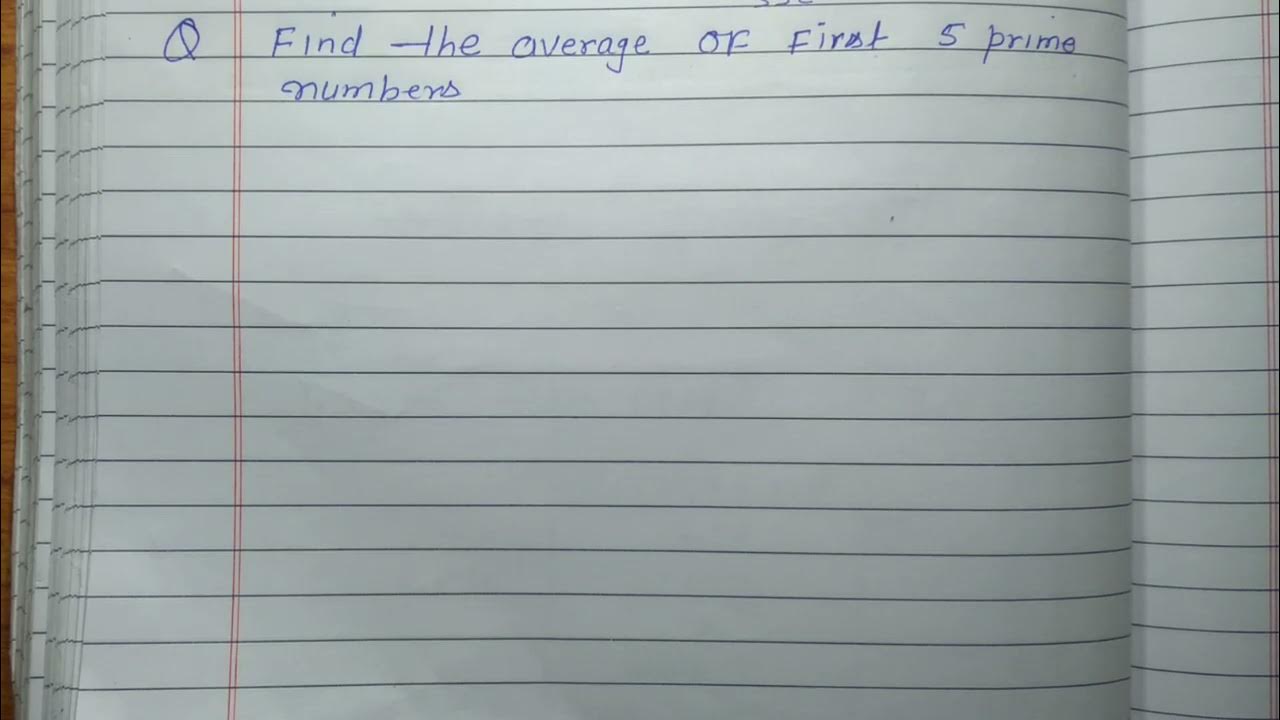 Q Find the average of First 5 prime
numbers